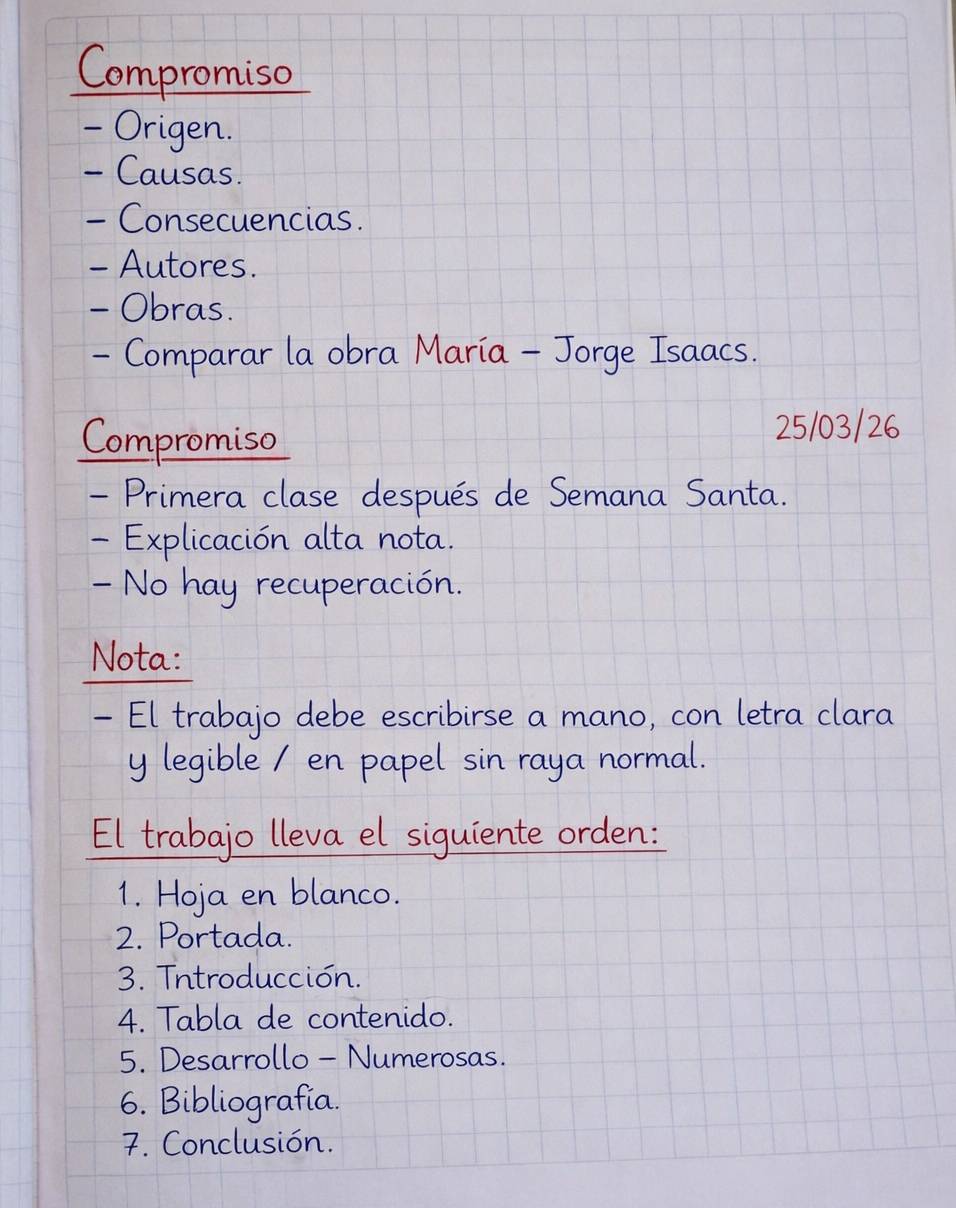 Compromiso
- Origen.
- Causas.
- Consecuencias.
- Autores.
- Obras.
- Comparar la obra María - Jorge Isaacs.
Compromiso 25/03/26
- Primera clase después de Semana Santa.
- Explicación alta nota.
- No hay recuperación.
Nota:
- El trabajo debe escribirse a mano, con letra clara
y legible / en papel sin raya normal.
El trabajo lleva el siguiente orden:
1. Hoja en blanco.
2. Portada.
3. Tntroducción.
4. Tabla de contenido.
5. Desarrollo - Numerosas.
6. Bibliografía.
7. Conclusión.